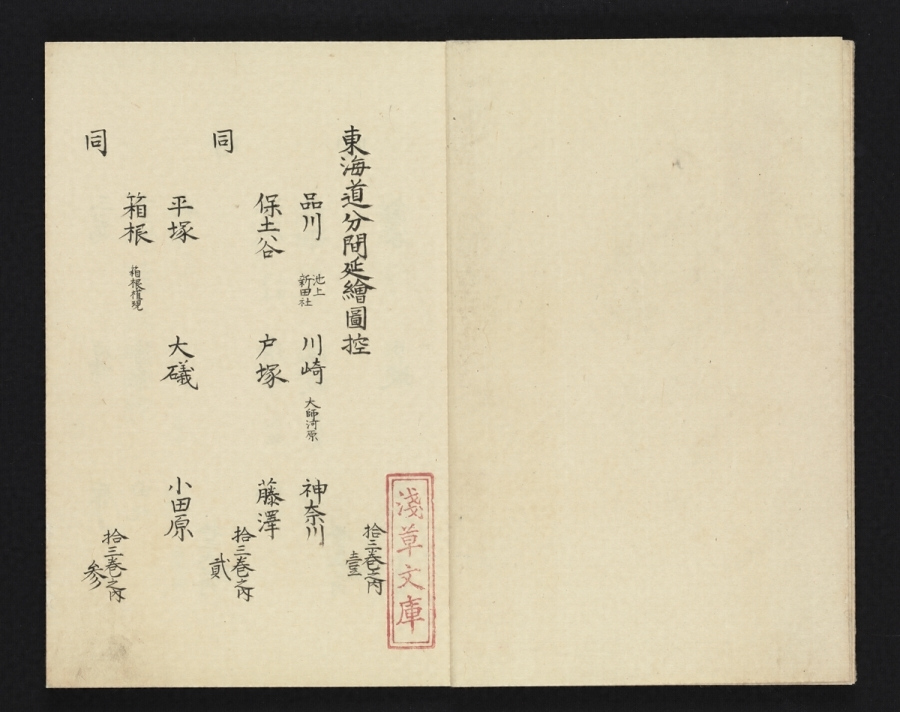 東海道分間延繪圖控
拾三巻之内
壹
品川 池上 新田社 川崎 大師河原 神奈川
保土谷 戸塚 藤澤
同
拾三巻之内
貳
平塚 大礒 小田原
箱根 箱根権現
同
拾三巻之内
参
淺草文庫